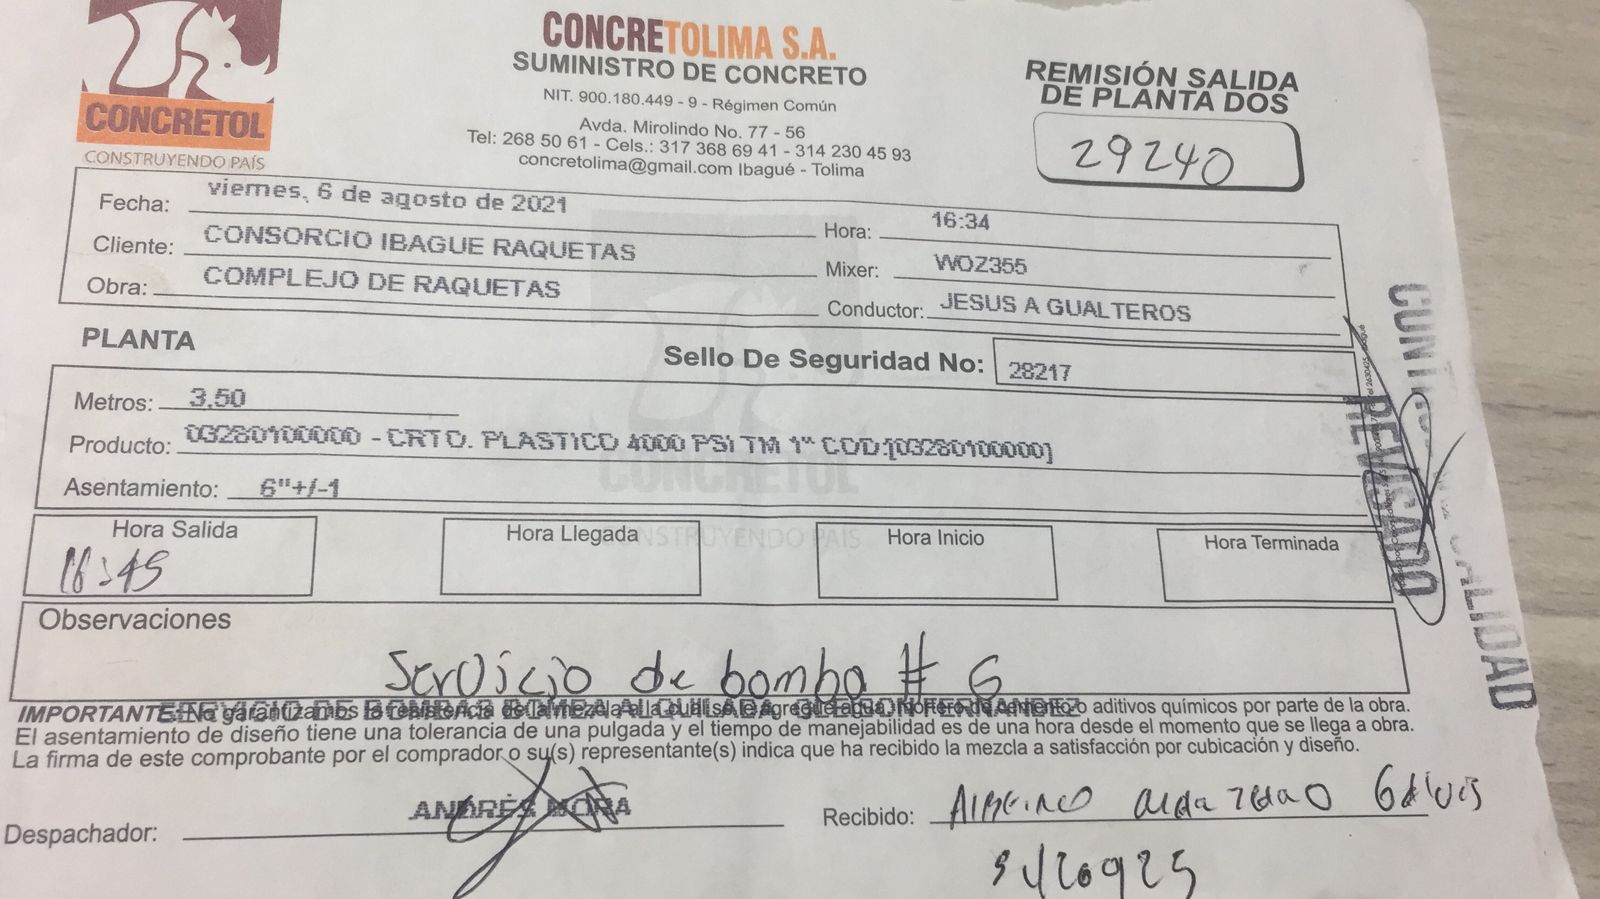 CONCRETOL
CONSTRUYENDO PAÍS
CONCRETOLIMA S.A.
SUMINISTRO DE CONCRETO
NIT. 900.180.449 - 9 - Régimen Común
Avda. Mirolindo No. 77 - 56
Tel: 268 50 61 - Cels.: 317 368 69 41 - 314 230 45 93
concretolima@gmail.com Ibagué - Tolima
REMISIÓN SALIDA
DE PLANTA DOS
29240
Fecha: viernes, 6 de agosto de 2021 Hora: 16:34
Cliente: CONSORCIO IBAGUE RAQUETAS Mixer: WOZ355
Obra: COMPLEJO DE RAQUETAS Conductor: JESUS A GUALTEROS
PLANTA Sello De Seguridad No: 28217
Metros: 3,50
Producto: 03280100000 - CRTO. PLASTICO 4000 PSI TM 1" COD:[03280100000]
Asentamiento: 6"+/-1
CONCRETOL
CONSTRUYENDO PAÍS
Hora Salida Hora Llegada Hora Inicio Hora Terminada
16:45
Observaciones
Servicio de bomba # 6
IMPORTANTE: No garantizamos la resistencia de la mezcla a la cual se le agregue agua, o aditivos químicos por parte de la obra.
El asentamiento de diseño tiene una tolerancia de una pulgada y el tiempo de manejabilidad es de una hora desde el momento que se llega a obra.
La firma de este comprobante por el comprador o su(s) representante(s) indica que ha recibido la mezcla a satisfacción por cubicación y diseño.
Despachador: ANDRÉS MORA Recibido:
CONTROL CALIDAD
REVISADO